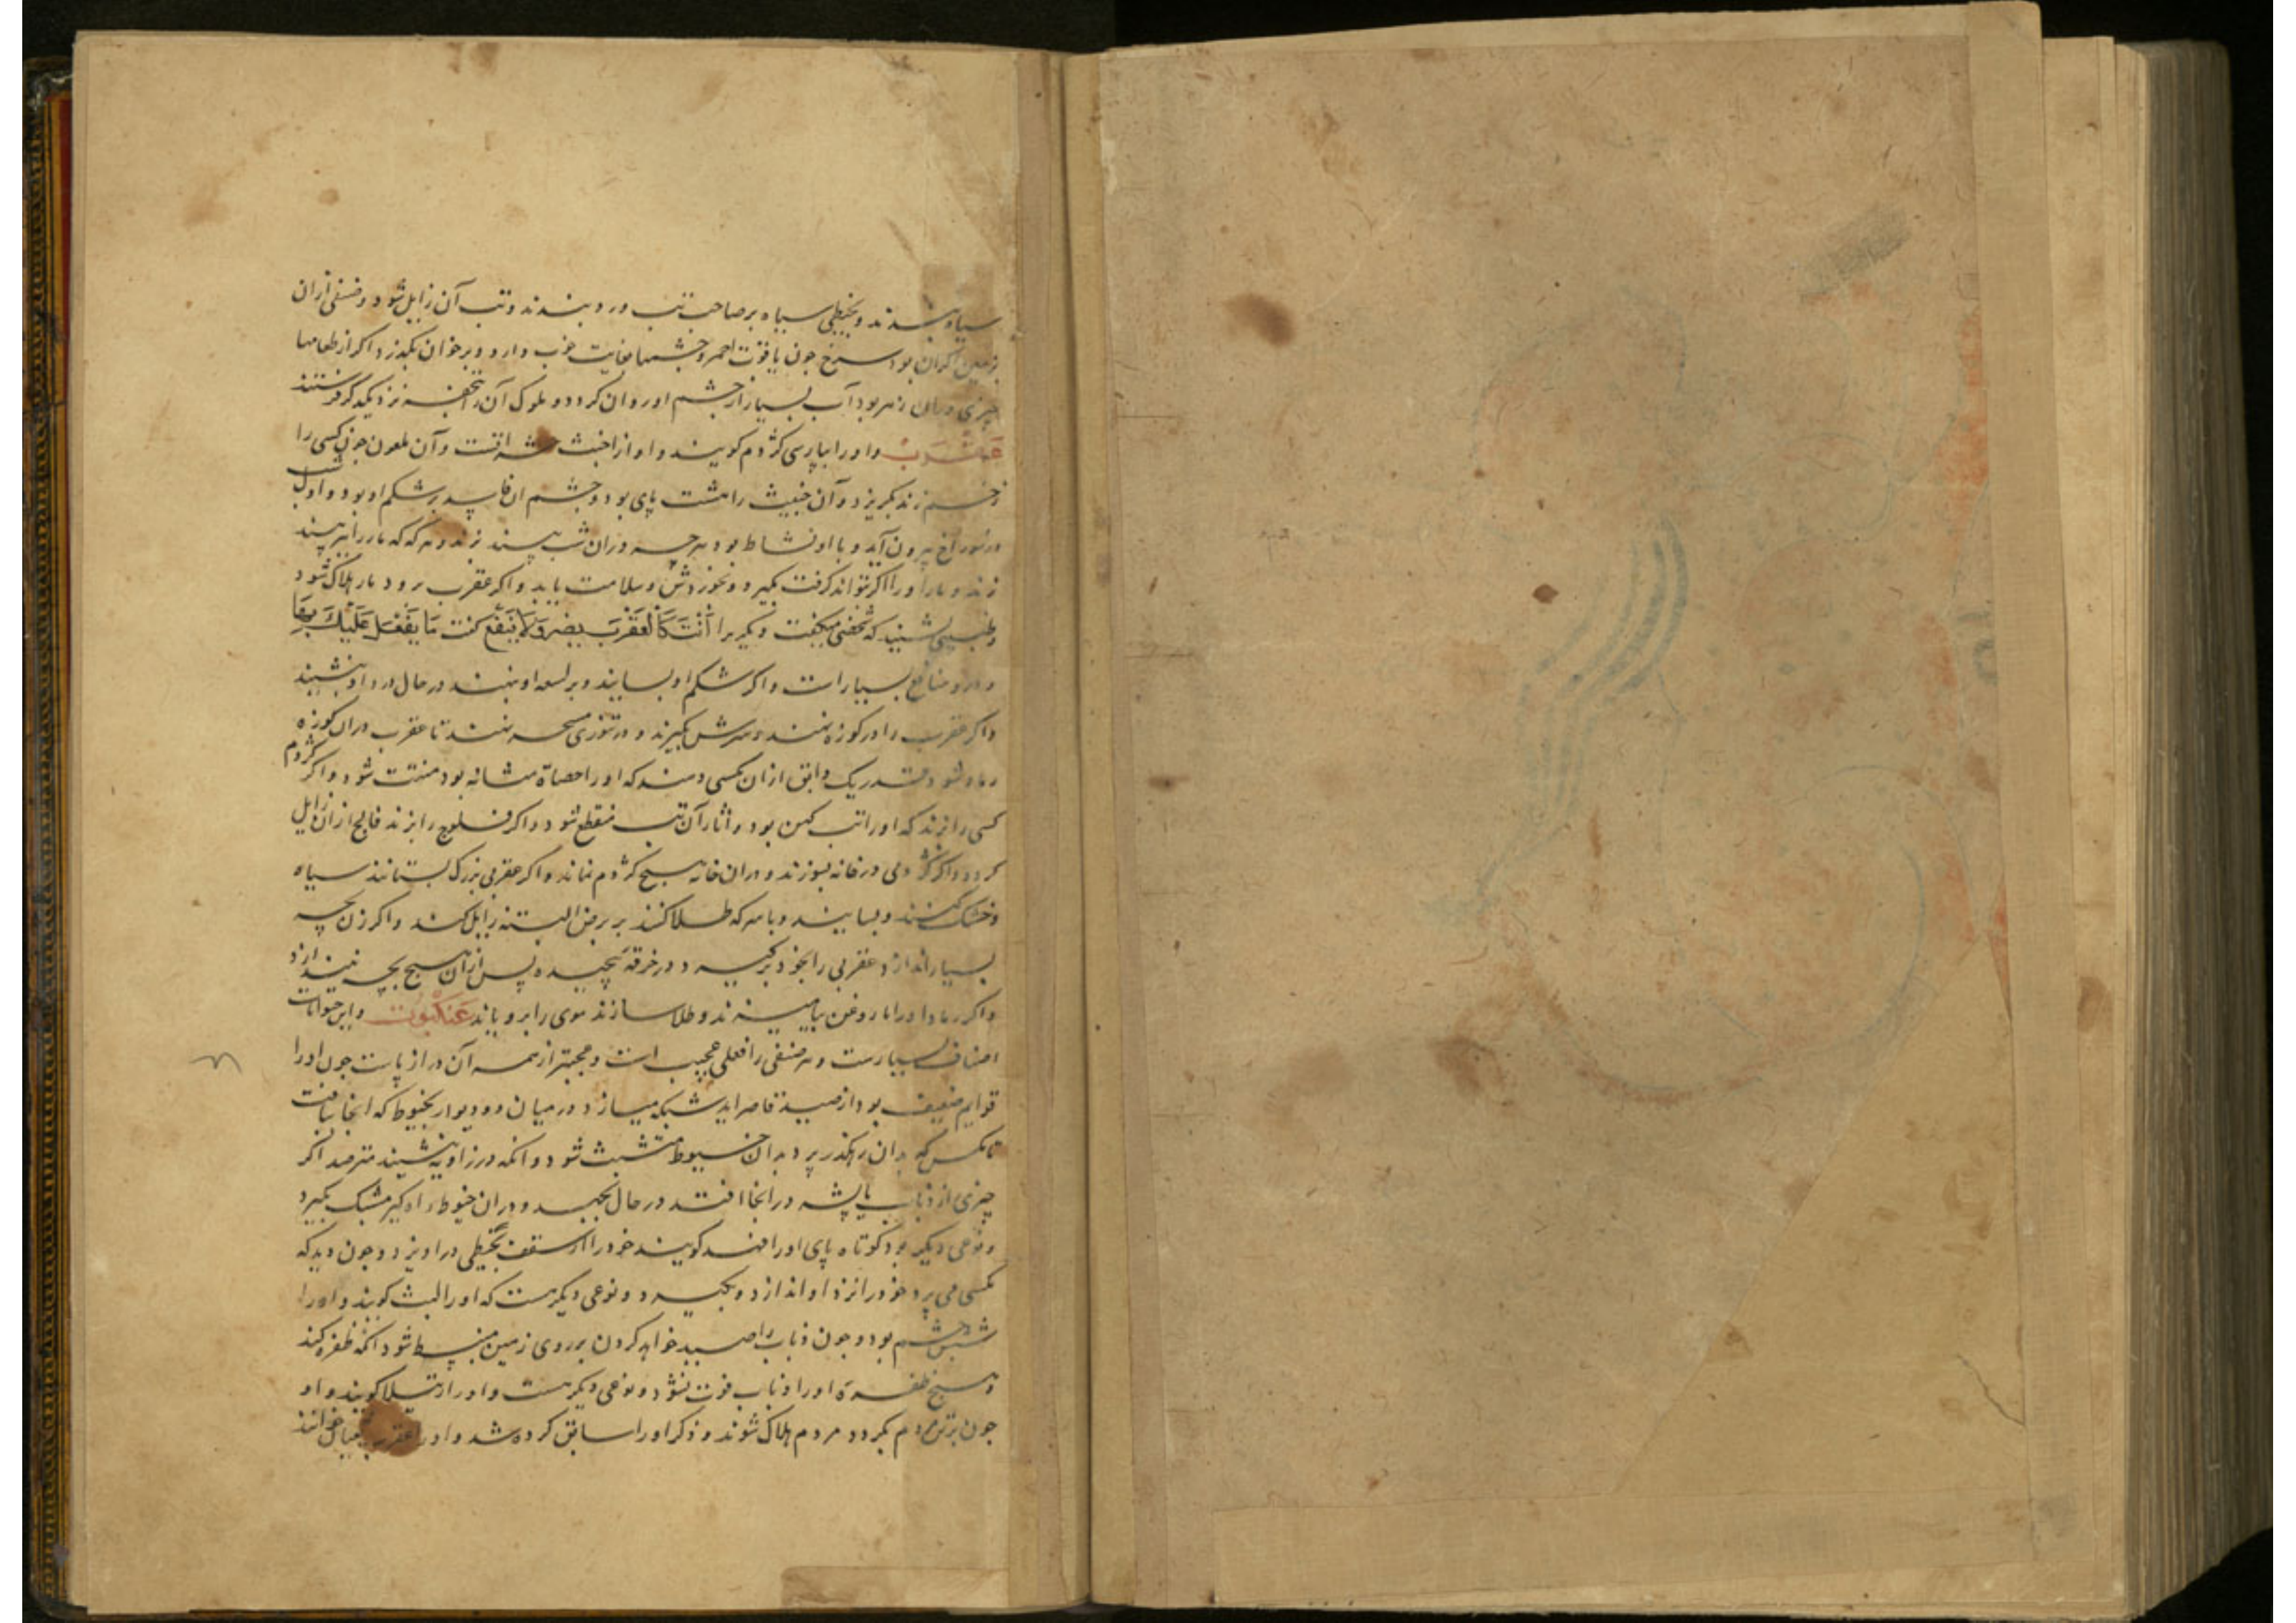 سیاه بندند و بخیطی سیاه بر صاحب تب ورد بندند و تب آن زایل شود و صنفی ازان
بزمین کرمان بود سرخ چون یاقوت احمر و چشمها بغایت خوب دارد و بر خوان بگذرد اکر از طعامها
چیزی دران زهر بود آب بسیار از چشم او روان کردد و ملوک آن را تحفه نزدیک فرستند
عقرب و او را بپارسی کژدم کویند و او از اخبث حشراتست و آن ملعون چون کسی را
زخم زند بکریزد و آن خبیث را هشت پای بود و چشم ان فاسد بر شکم او بود و اول شب
از سوراخ بیرون آید و با او نشاط بود هرچه دران شب بیند بزند و هر که که مار را بیند
زند و مار او را اکر تواند کرفت بکیرد و بخوردش و سلامت یابد و اکر عقرب برود مار هلاک شود
و طبیبی شنید که شخصی میکفت دیکر برا أنت کالعقرب یضر ولا ینفع کفت ما یفعل علیک بها
و درو منافع بسیار است و اکر شکم او بسایند و بر لسعه او نهند در حال درد او بنشیند
و اکر عقرب را در کوزه نهند و سرش بکیرند و در تنوری مسجر نهند تا عقرب دران کوزه
رماد شود قدر یک دانق ازان بکسی دهند که او را حصاة مثانه بود مفتت شود و اکر کژدم
کسی را بزند که او را تب کهن بود و اثار آن تب منقطع شود و اکر مفلوج را بزند فالج ازان زایل
کردد و اکر کژدمی در خانه بسوزند دران خانه هیچ کژدم نماند و اکر عقربی بزرک بستانند سیاه
و خشک کنند و بسایند و با سرکه طلا کنند بر برص البته زایل کند و اکر زن بچه
بسیار اندازد عقربی را بخود برکیرد و در خرقه پیچیده پس ازان هیچ بچه نیندازد
و اکر رماد او را با روغن بیامیزند و طلا سازند موی را برویاند عنکبوت و این حیوانات
اصناف بسیارست و هر صنفی را فعلی عجیب است و عجبتر از همه آن دراز پاست چون او را
قوایم ضعیف بود از صید قاصر اید شبکه میسازد در میان دو دیوار بخیوط که انجا بیافت
تا مکس که بدان رهکذر پرد بدان خیوط متشبث شود و انکه در زاویه بنشیند مترصد اکر
چیزی از ذباب یا پشه در انجا افتد در حال بجهد و دران خیوط او را کیر مشبک بکیرد
و نوعی دیکر بود کوتاه پای او را فهد کویند خود را از سقف بخیطی دراویزد و چون دید که
مکسی می پرد خود را نزد او اندازد و بکیرد و نوعی دیکر هست که او را لیث کویند و او را
شش چشم بود و چون ذباب را صید خواهد کردن بر روی زمین منبسط شود انکه ظفره کند
و هیچ ظفره او را ذباب فوت نشود و نوعی دیکر هست و او را رتیلا کویند و او
چون برتن مردم بکردد مردم هلاک شوند و ذکر او را سابق کرده شد و او را عقرب خوانند